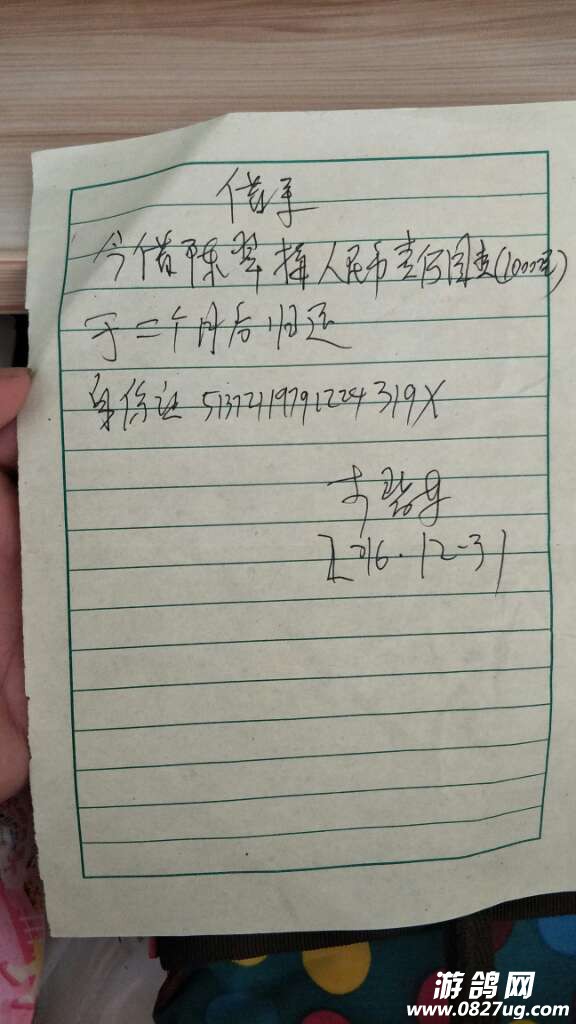 借条
今借陈翠 人民币壹仟圆 (1000元)
于二个月后归还
身份证 51372119791224319X
2016.12-31
游鸽网
www.0827ug.com